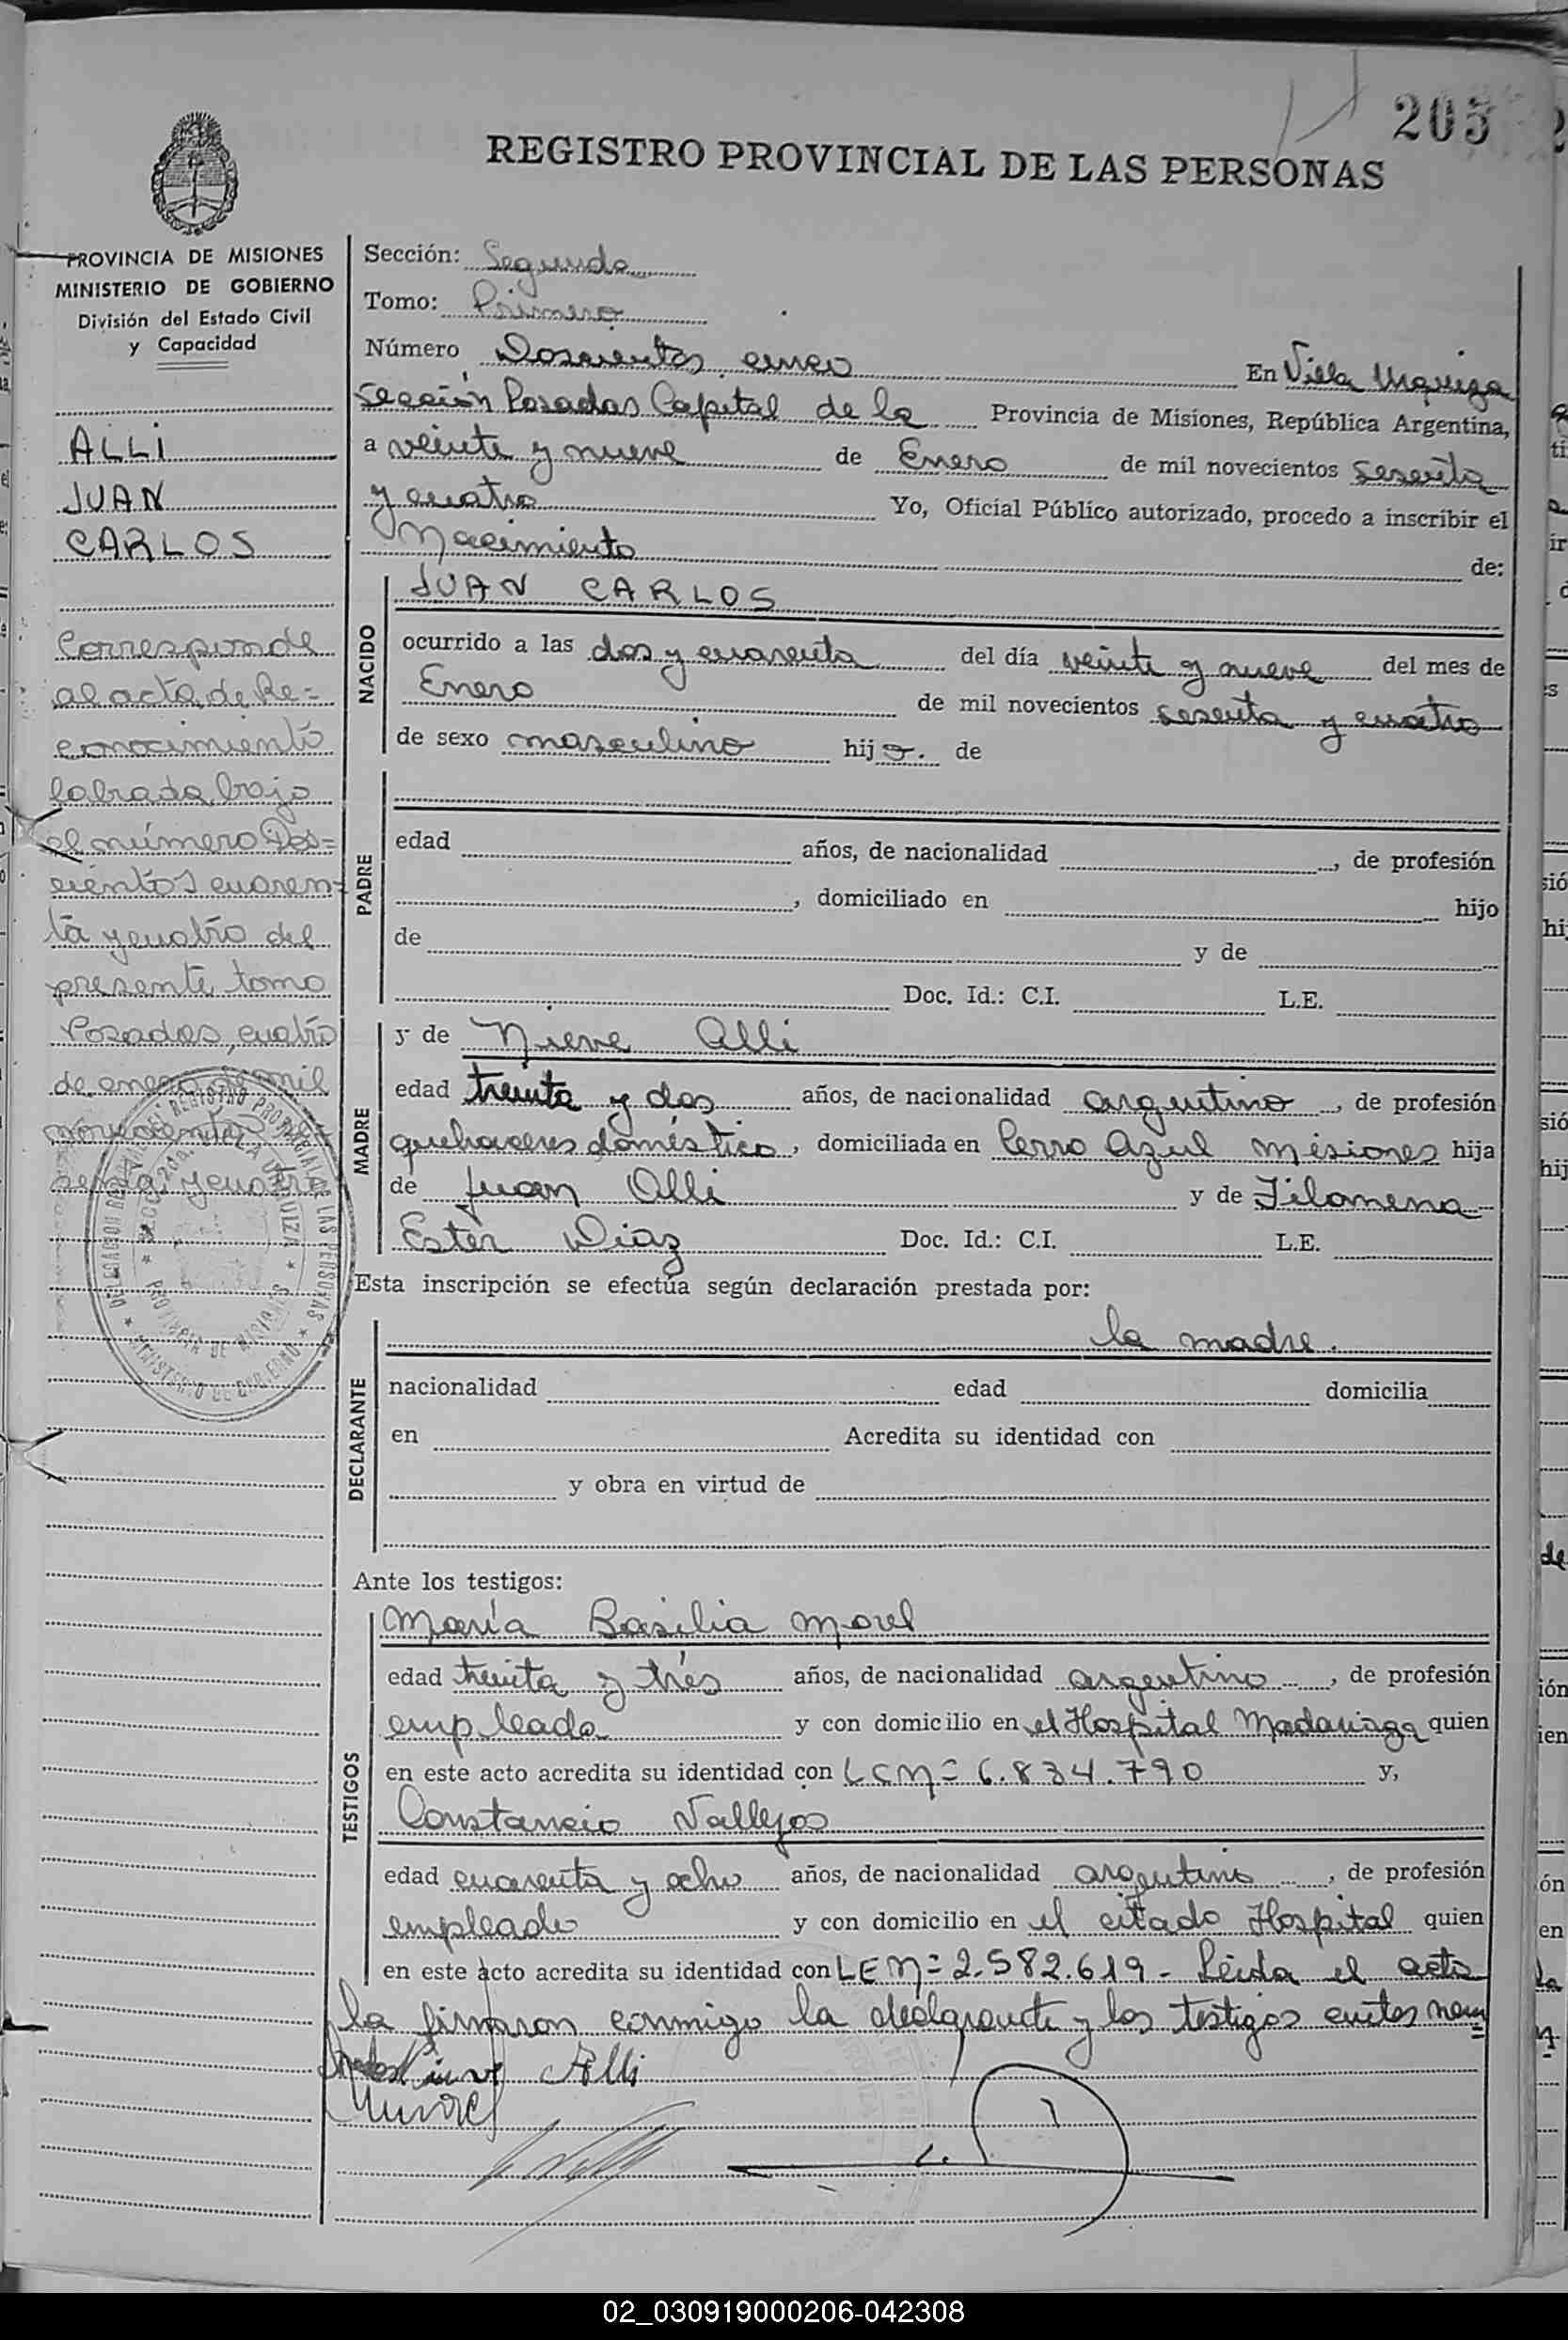 205
REGISTRO PROVINCIAL DE LAS PERSONAS
PROVINCIA DE MISIONES
MINISTERIO DE GOBIERNO
División del Estado Civil
y Capacidad
ALLI
JUAN
CARLOS
Corresponde
al acta de Re=
conocimiento
labrada bajo
el número Dos=
cientos cuaren=
ta y cuatro del
presente tomo
Posadas, cuatro
de enero de mil
novecientos
senta y cuatro
Sección: Segunda
Tomo: Primero
Número Doscientos cinco En Villa Urquiza
Sección Posadas Capital de la Provincia de Misiones, República Argentina,
a veinte y nueve de Enero de mil novecientos sesenta
y cuatro Yo, Oficial Público autorizado, procedo a inscribir el
Nacimiento de:
NACIDO
JUAN CARLOS
ocurrido a las dos y cuarenta del día veinte y nueve del mes de
Enero de mil novecientos sesenta y cuatro
de sexo masculino hijo. de
PADRE
edad años, de nacionalidad , de profesión
, domiciliado en hijo
de y de
Doc. Id.: C.I. L.E.
MADRE
y de Nieve Alli
edad treinta y dos años, de nacionalidad argentino, de profesión
quehaceres doméstico, domiciliada en Cerro Azul Misiones hija
de Juan Alli y de Filomena
Ester Diaz Doc. Id.: C.I. L.E.
Esta inscripción se efectúa según declaración prestada por:
DECLARANTE
la madre.
nacionalidad edad domicilia
en Acredita su identidad con
y obra en virtud de
Ante los testigos:
TESTIGOS
María Basilia Morel
edad treinta y tres años, de nacionalidad argentino, de profesión
empleada y con domicilio en el Hospital Madariaga quien
en este acto acredita su identidad con LCNº 6.834.790 y,
Constancio Vallejos
edad cuarenta y ocho años, de nacionalidad argentino, de profesión
empleado y con domicilio en el citado Hospital quien
en este acto acredita su identidad con LENº 2.582.619 - Leida el acta
la firmaron conmigo la declarante y los testigos antes nom
Alli
02_030919000206-042308